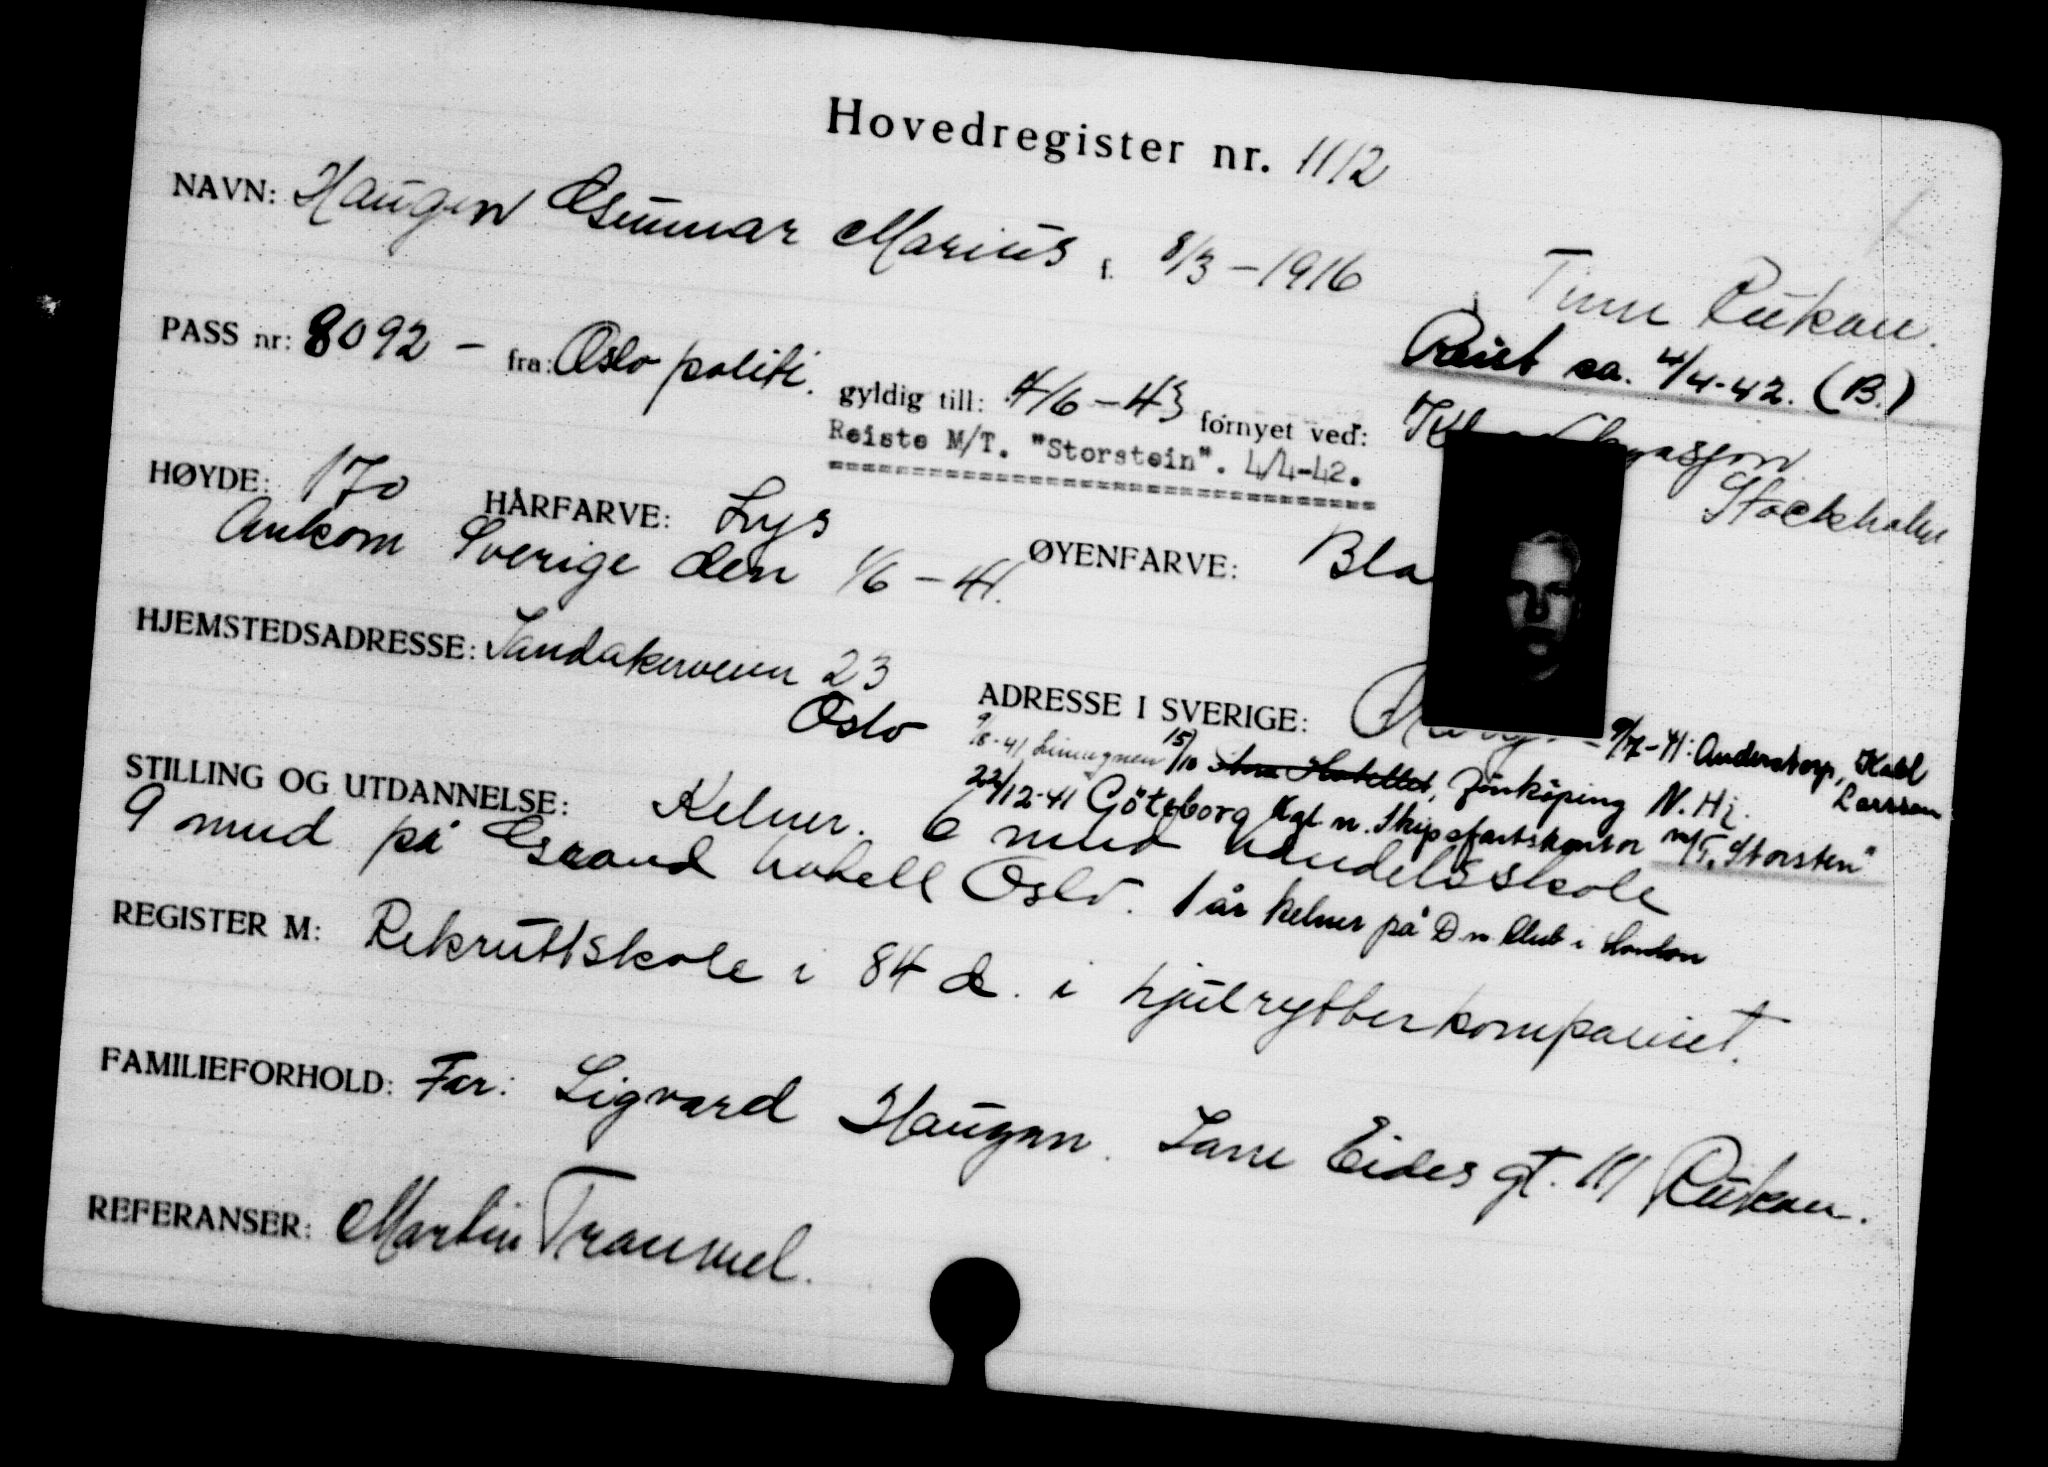 Hovedregister nr. 1112
NAVN: Haugen Gunnar Marius f. 8/3 - 1916
Tinn Rukan.
PASS nr: 8092 - fra: Oslo politi. gyldig till: 4/6 - 43 fornyet ved:
Reist sa. 4/4-42. (B.)
Reiste M/T. "Storstein". 4/4-42.
Stockholm
HØYDE: 170 HÅRFARVE: Lys ØYENFARVE: Bla
Ankom Sverige den 1/6 - 41.
HJEMSTEDSADRESSE: Sandakerveien 23
Oslo
ADRESSE I SVERIGE: 9/7-41: Anderstorp, Karl Larsson
9/8-41 15/10 Hotellet, Jönköping N. Hj.
22/12-41 Göteborg Kgl n. Skipsfartskontor m/T. "Storsten"
STILLING OG UTDANNELSE: Kelner. 6 mnd handelsskole
9 mnd på Grand hotell Oslo. 1 år kelner på D n. Club i London
REGISTER M: Rekruttskole i 84 d. i hjulrytterkompaniet.
FAMILIEFORHOLD: Far: Sigvard Haugen. Sam Eides gt. 111 Rukan.
REFERANSER: Martin Tranmel.